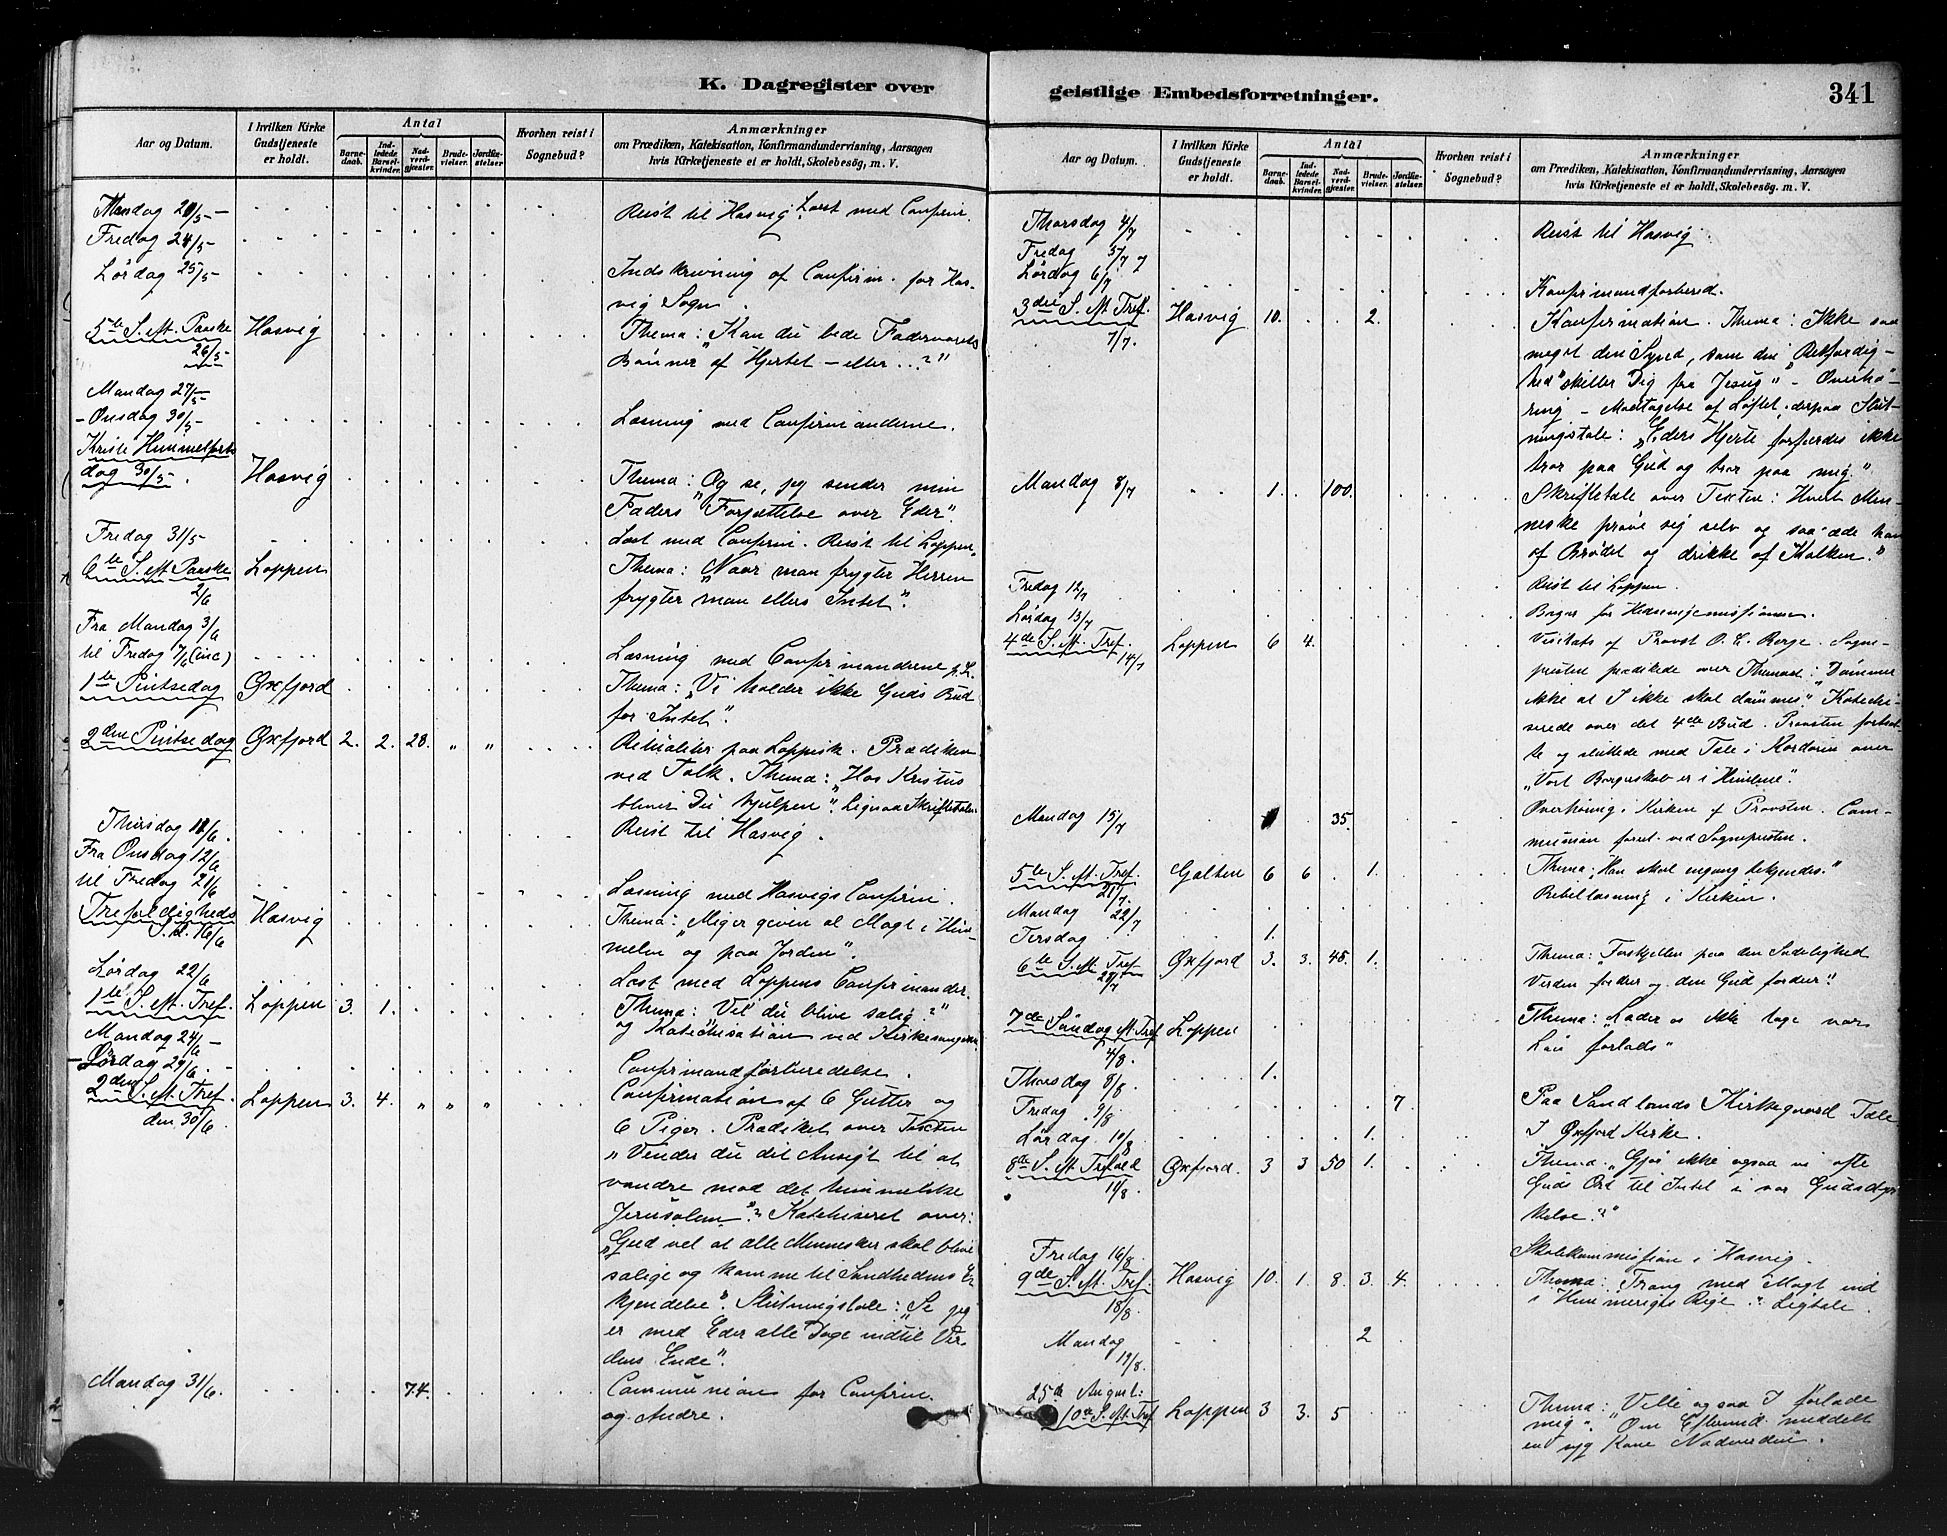 K. Dagregister over
geistlige Embedsforretninger.
341
Aar og Datum.
I hvilken Kirke Gudstjeneste er holdt.
Antal
Barnedaab.
Indledede Barselkvinder.
Nadverdgjæster.
Brudevielser.
Jordfæstelser
Hvorhen reist i Sognebud?
Anmærkninger
om Prædiken, Katekisation, Konfirmandundervisning, Aarsagen
hvis Kirketjeneste et er holdt, Skolebesøg, m. V.
Mandag 20/5 –
Fredag 24/5 – Reist til Hasvig. Læst med Confirm.
Lördag 25/5 – Indskrivning af Confirm. for Has-
vig Sogn.
5te S. M. Paaske Hasvig Thema: „Kan du bede Fadervorets
26/5 – Bönner af Hjertet – eller ...?"
Mandag 27/5 –
– Onsdag 30/5 – Læsning med Confirmanderne.
Kristi Himmelfarts
dag 30/5. Hasvig Thema: „Og se, jeg sender min
Faders Forjættelse over Eder".
Fredag 31/5 Læst med Confirm. Reist til Loppen.
6te S. M. Paaske Loppen Thema: „Naar man frygter Herren
2/6 frygter man ellers Intet".
Fra Mandag 3/6
til Fredag 7/6 (inc) Læsning med Confirmanderne p. L.
1ste Pintsedag Öxfjord Thema: „Vi holder ikke Guds Bud
for Intet".
2den Pintsedag Öxfjord 2. 2. 28. „ „ Ritualiter paa Lappisk. Prædiken
ved Tolk. Thema: „Hos Kristus
bliver Du hjulpen". Ligesaa Skriftetalen
Thirsdag 11/6. Reist til Hasvig.
Fra Onsdag 12/6
til Fredag 21/6 Læsning med Hasvigs Confirm.
Trefoldigheds Hasvig Thema: „Mig er given al Magt i Him-
S. d. 16/6 melen og paa Jorden".
Lördag 22/6 Læst med Loppens Confirmander.
1ste S. M. Tref. Loppen 3. 1. Thema: „Vil du blive salig?"
og Katechisation ved Kirkesangeren
Mandag 24/6 –
– Lördag 29/6. Confirmandforberedelse.
2den S. M. Tref. Loppen 3. 4. „ „ „ Confirmation af 6 Gutter og
den 30/6 6 Piger. Prædiket over Texten
„Vender du dit Ansigt til at
vandre mod det himmelske
Jerusalem"? Katekiseret over:
„Gud vel at alle Mennesker skal blive
salige og komme til Sandheds Er-
kjendelse". Slutningstale: „Se jeg
er med Eder alle Dage indtil Ver-
dens Ende".
Mandag 31/6. 74. Communion for Confirm.
og Andre.
Aar og Datum.
I hvilken Kirke Gudstjeneste er holdt.
Antal
Barnedaab.
Indledede Barselkvinder.
Nadverdgjæster.
Brudevielser.
Jordfæstelser.
Hvorhen reist i Sognebud?
Anmærkninger
om Prædiken, Katekisation, Konfirmandundervisning, Aarsagen
hvis Kirketjeneste et er holdt, Skolebesög, m. V.
Thorsdag 4/7 Reist til Hasvig
Fredag 5/7 og
Lördag 6/7 Konfirmandforbered.
3die S. M. Tref. Hasvig 10. 2. Konfirmation. Thema: Ikke saa
7/7. meget din Synd, som din „Retfærdig-
hed" skiller Dig fra Jesus" – Overhö-
ring – Modtagelse af Löftet, derpaa Slut-
ningstale: „Eders Hjerte forfærdes ikke
tror paa Gud og tror paa mig."
Mandag 8/7 1. 100. Skriftetale over Texten: Hvert Men-
neske pröve sig selv og saa æde han
af Brödet og drikke af Kalken."
Fredag 12/7 Reist til Loppen.
Lördag 13/7 Böger for Hedningemissionen.
4de S. M. Tref. Loppen 6 4. Visitats af Provst O. E. Berge. Sogne-
14/7 presten prædikede over Themaet: „Dömmer
ikke at I ikke skal dömmes". Katechi-
serede over det 4de Bud. Provsten fortsat-
te og sluttede med Tale i Kordören over
„Vort Borgerskab er i Himlene".
Mandag 15/7 35. Overhöring i Kirken af Provsten. Com-
munion forret. ved Sognepresten.
5te S. M. Tref. Galten 6 6 1. Thema: „Han skal engang bekjendes."
21/7. Bibellæsning i Kirken.
Mandag 22/7
Tirsdag 1.
6te S. M. Tref. Öxfjord 3. 3. 45. 1. Thema: „Forskjellen paa den Sædelighed
28/7 Verden fordrer og den Gud fordrer"!
7de Söndag M. Tref Loppen Thema: „Lader os ikke tage vor
4/8. Lön forlods"
Thorsdag 8/8 1.
Fredag 9/8 7. Paa Sandlands Kirkegaard Tale
Lördag 10/8 1. I Öxfjord Kirke.
8de S. M. Trefold Öxfjord. 3 3 50 1. Thema: „Gjör ikke ogsaa vi ofte
11/8. Guds Ord til Intet i vor Gudsdyr-
kelse?"
Fredag 16/8 Skolekommission i Hasvig.
9de S. M. Tref. Hasvig 10. 1. 8. 3. 4. Thema: Træng med Magt ind
18/8. i Himmeriges Rige". Ligtale.
Mandag 2
19/8.
25de August:
10de S. M. Tref Loppen 3 3. 5 Thema: „Ville og saa I forlade
mig". Om Efterm. meddelt
en syg Kone Nadverden.